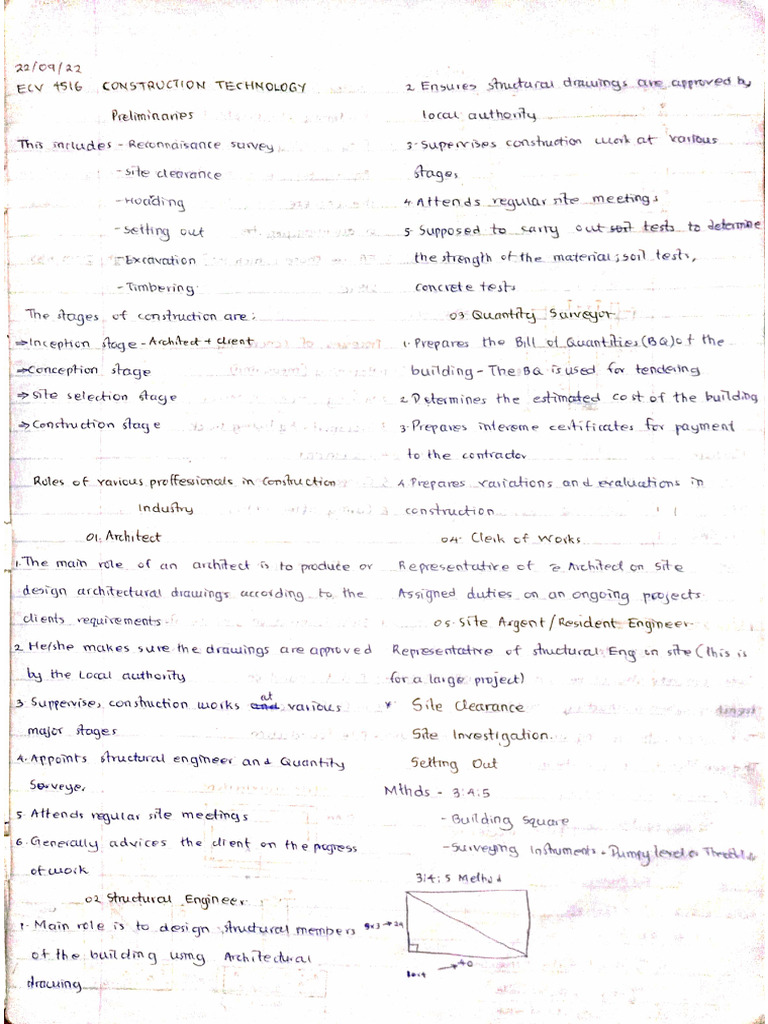 22/09/22
ECV 4516 CONSTRUCTION TECHNOLOGY
Preliminaries
This includes - Reconnaisance survey
- Site clearance
- Hoading
- Setting out
- Excavation
- Timbering
The stages of construction are:
⇒ Inception stage - Architect + client
⇒ Conception stage
⇒ Site selection stage
⇒ Construction stage
Roles of various proffessionals in Construction
Industry
01. Architect
1. The main role of an architect is to produce or
design architectural drawings according to the
clients requirements.
2. He/she makes sure the drawings are approved
by the Local authority
3. Suppervises construction works at various
major stages
4. Appoints structural engineer and Quantity
Surveyer
5. Attends regular site meetings
6. Generally advices the client on the progress
of work
02 Structural Engineer
1. Main role is to design structural members
of the building using Architectural
drawing
2 Ensures structural drawings are approved by
local authority
3. Supervises construction work at various
stages
4. Attends regular site meetings
5. Supposed to carry out soil tests to determine
the strength of the material; soil tests,
concrete tests
03 Quantity Surveyor
1. Prepares the Bill of Quantities (BQ) of the
building - The BQ is used for tendering
2. Determines the estimated cost of the building
3. Prepares intereme certificates for payment
to the contractor
4. Prepares variations and evaluations in
construction
04. Clerk of Works
Representative of Architect on Site
Assigned duties on an ongoing projects
05. Site Argent / Resident Engineer
Representative of structural Eng on site (This is
for a large project)
* Site Clearance
Site Investigation.
Setting Out
Mthds - 3:4:5
- Building Square
- Surveying Instruments - Dumpy level or
3:4:5 Method
40